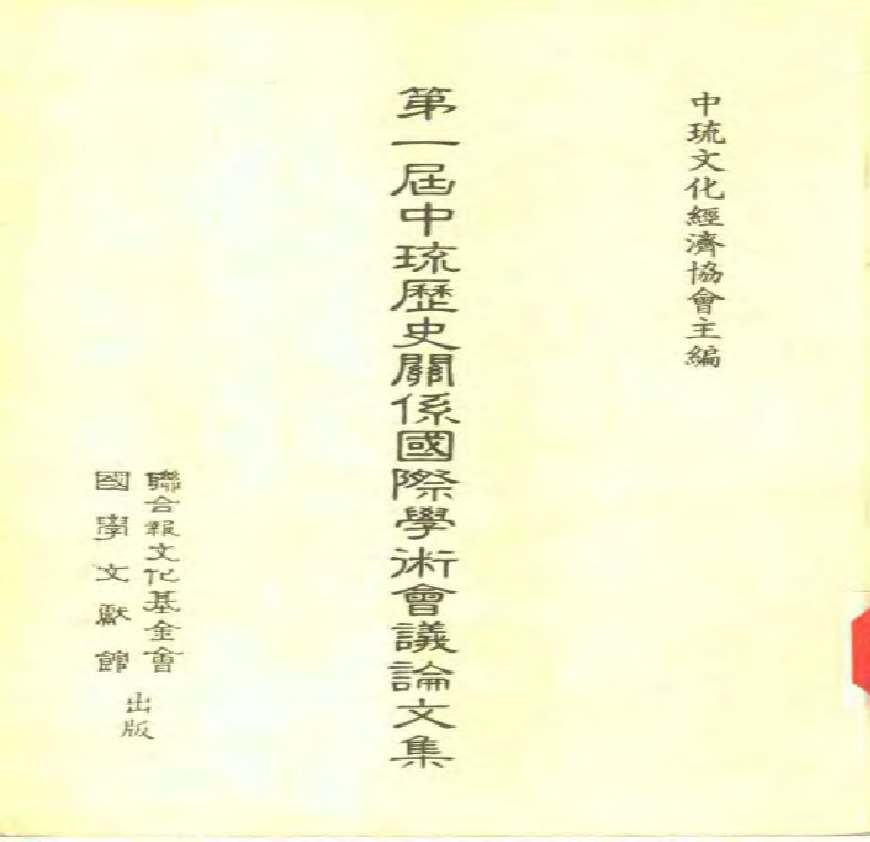 中琉文化經濟協會主編
第一屆中琉歷史關係國際學術會議論文集
聯合報文化基金會
國學文獻館
出版